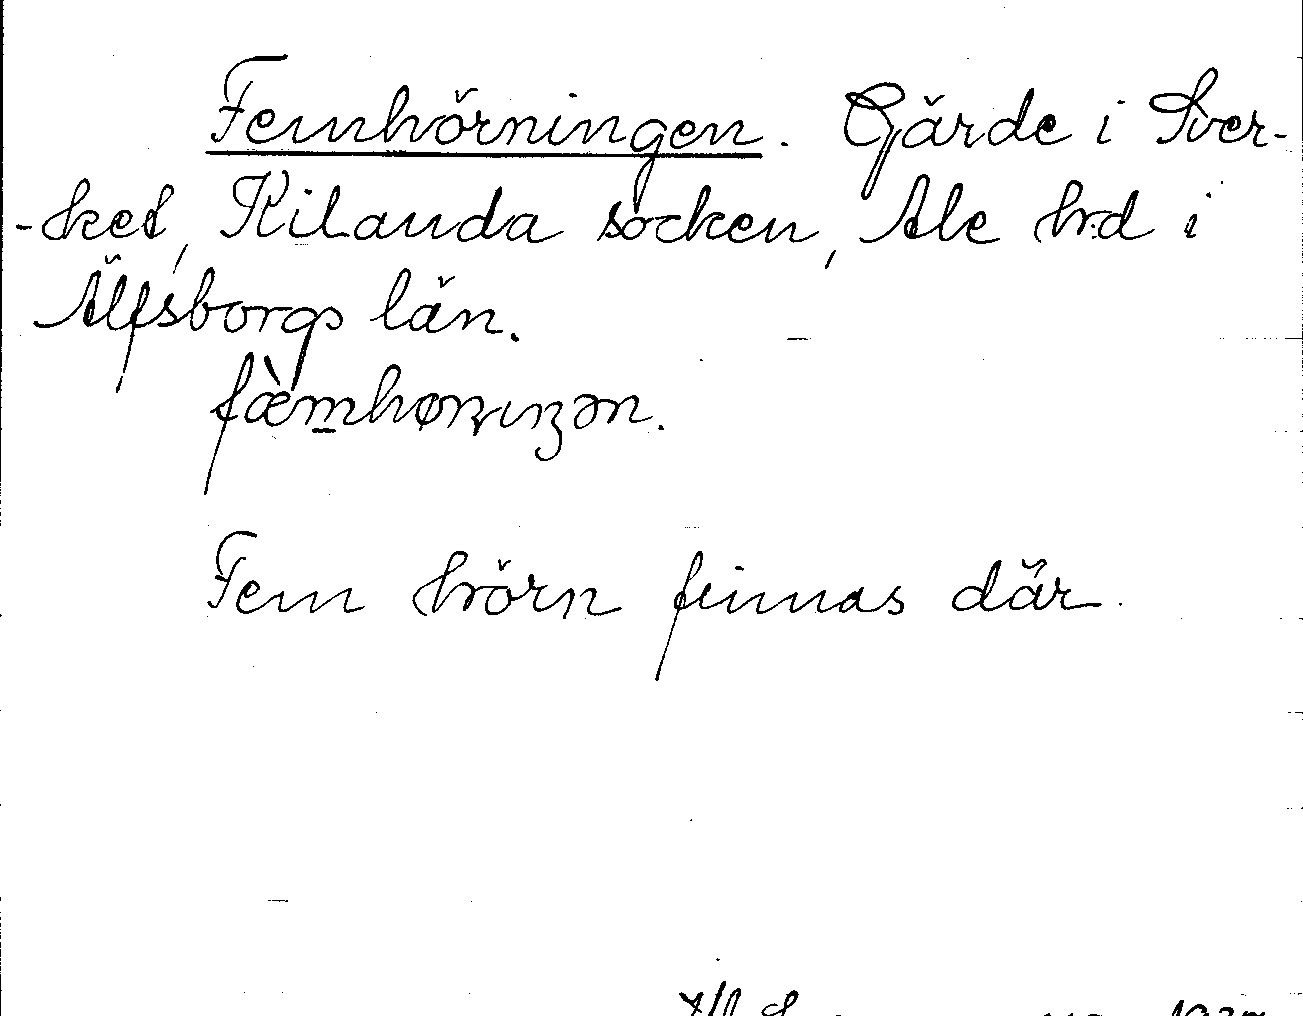 Femhörningen. Gärde i Sver-
-ket, Kilanda socken, Ale hrd i
Älfsborgs län.
Fem hörn finnas där.